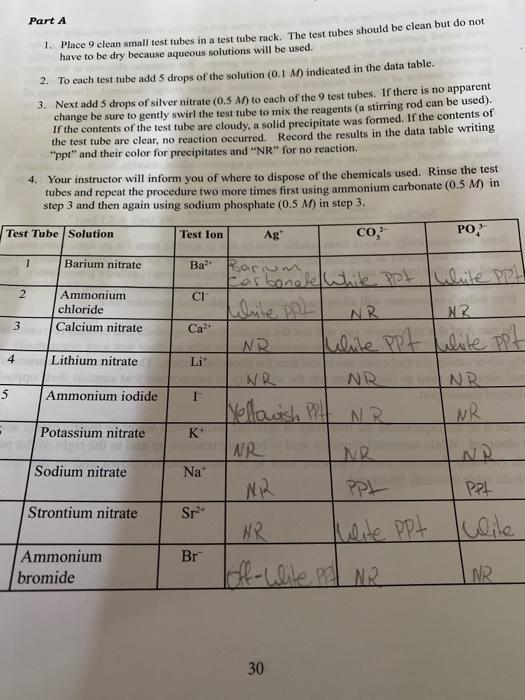 Part A
1. Place 9 clean small test tubes in a test tube rack. The test tubes should be clean but do not
have to be dry because aqueous solutions will be used.
2. To each test tube add 5 drops of the solution (0.1 M) indicated in the data table.
3. Next add 5 drops of silver nitrate (0.5 M) to each of the 9 test tubes. If there is no apparent
change be sure to gently swirl the test tube to mix the reagents (a stirring rod can be used).
If the contents of the test tube are cloudy, a solid precipitate was formed. If the contents of
the test tube are clear, no reaction occurred. Record the results in the data table writing
"ppt" and their color for precipitates and "NR" for no reaction.
4. Your instructor will inform you of where to dispose of the chemicals used. Rinse the test
tubes and repeat the procedure two more times first using ammonium carbonate (0.5 M) in
step 3 and then again using sodium phosphate (0.5 M) in step 3.
Test Tube Solution Test Ion Ag⁺ CO₃²⁻ PO₄³⁻
1 Barium nitrate Ba²⁺ Barium Carbonate White PPT White PPt
2 Ammonium chloride Cl⁻ White ppt NR NR
3 Calcium nitrate Ca²⁺ NR White PPT White PPT
4 Lithium nitrate Li⁺ NR NR NR
5 Ammonium iodide I⁻ Yellowish PPt NR NR
Potassium nitrate K⁺ NR NR NR
Sodium nitrate Na⁺ NR PPt PPt
Strontium nitrate Sr²⁺ NR White PPt White
Ammonium bromide Br⁻ Off-White PPt NR NR
30